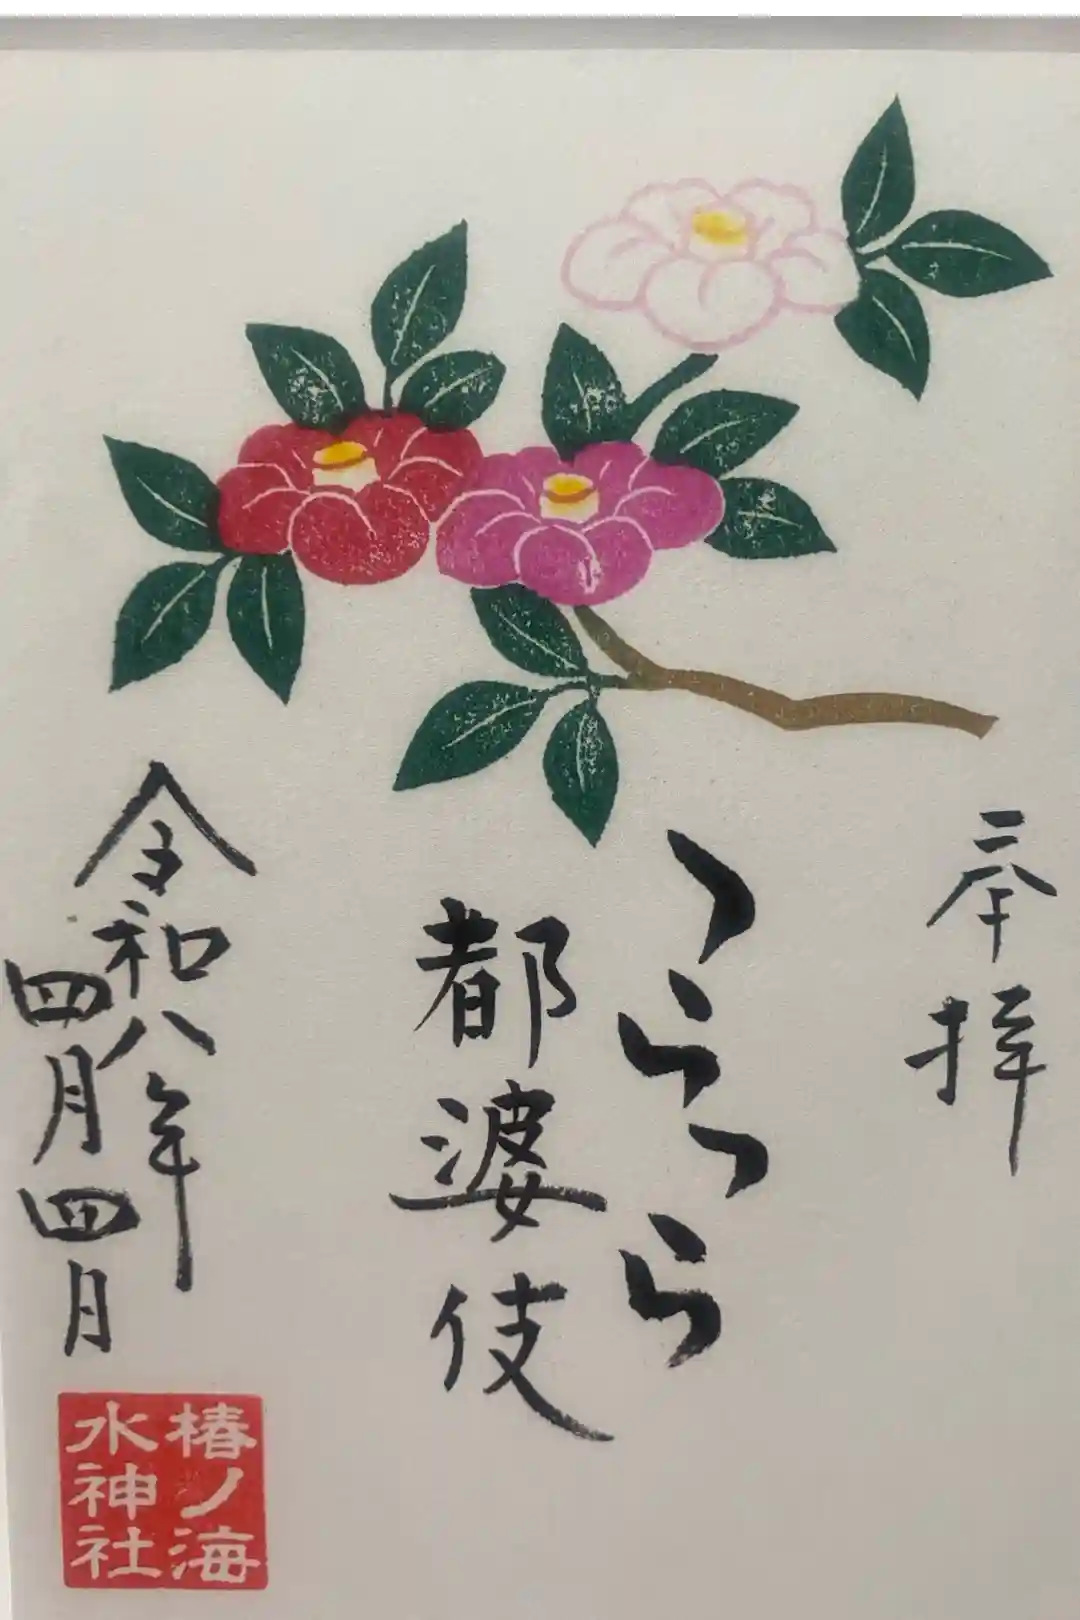 奉拝
つらつら
都婆伎
令和八年
四月四月
椿ノ海
水神社